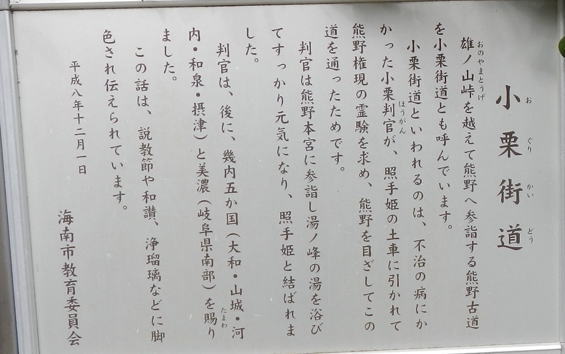 小栗街道
おぐりかいどう
おのやまとうげ
雄ノ山峠を越えて熊野へ参詣する熊野古道
を小栗街道とも呼んでいます。
小栗街道といわれるのは、不治の病にか
ほうがん
かった小栗判官が、照手姫の土車に引かれて
熊野権現の霊験を求め、熊野を目ざしてこの
道を通ったためです。
判官は熊野本宮に参詣し湯ノ峰の湯を浴び
てすっかり元気になり、照手姫と結ばれま
した。
判官は、後に、幾内五か国（大和・山城・河
内・和泉・摂津）と美濃（岐阜県南部）を賜り
たまわ
ました。
この話は、説教節や和讃、浄瑠璃などに脚
色され伝えられています。
平成八年十二月一日
海南市教育委員会